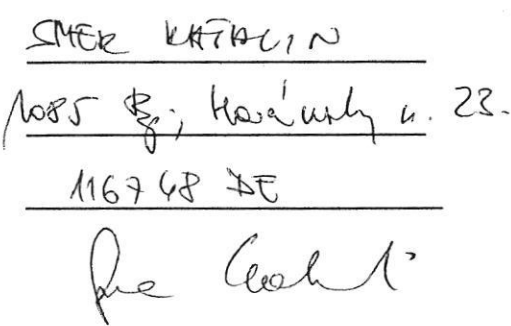 SMER KATALIN
1085 Bp; Horánszky u. 23.
116748 DE